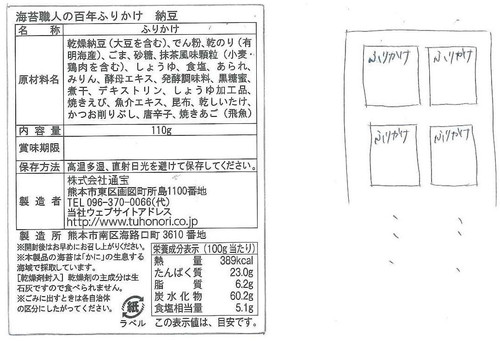 海苔職人の百年ふりかけ　納豆
名　称　ふりかけ
原材料名
乾燥納豆（大豆を含む）、でん粉、乾のり（有
明海産）、ごま、砂糖、抹茶風味顆粒（小麦・
鶏肉を含む）、しょうゆ、食塩、あられ、
みりん、酵母エキス、発酵調味料、黒糖蜜、
煮干、デキストリン、しょうゆ加工品、
焼きえび、魚介エキス、昆布、乾しいたけ、
かつお削りぶし、唐辛子、焼きあご（飛魚）
内容量　110g
賞味期限
保存方法　高温多湿、直射日光を避けて保存してください。
製造者
株式会社通宝
熊本市東区画図町所島1100番地
TEL 096-370-0066(代)
当社ウェブサイトアドレス
http://www.tuhonori.co.jp
製造所　熊本市南区海路口町3610番地
※開封後はお早めにお召し上がりください。
※本製品の海苔は「かに」の生息する
海域で採取しています。
【乾燥剤封入】乾燥剤の主成分は生
石灰ですので食べられません。
※ごみに出すときは各自治体
の区分にしたがってください。
紙
ラベル
栄養成分表示（100g当たり）
熱量　389kcal
たんぱく質　23.0g
脂質　6.2g
炭水化物　60.2g
食塩相当量　5.1g
この表示値は、目安です。
ふりかけ　ふりかけ
ふりかけ　ふりかけ